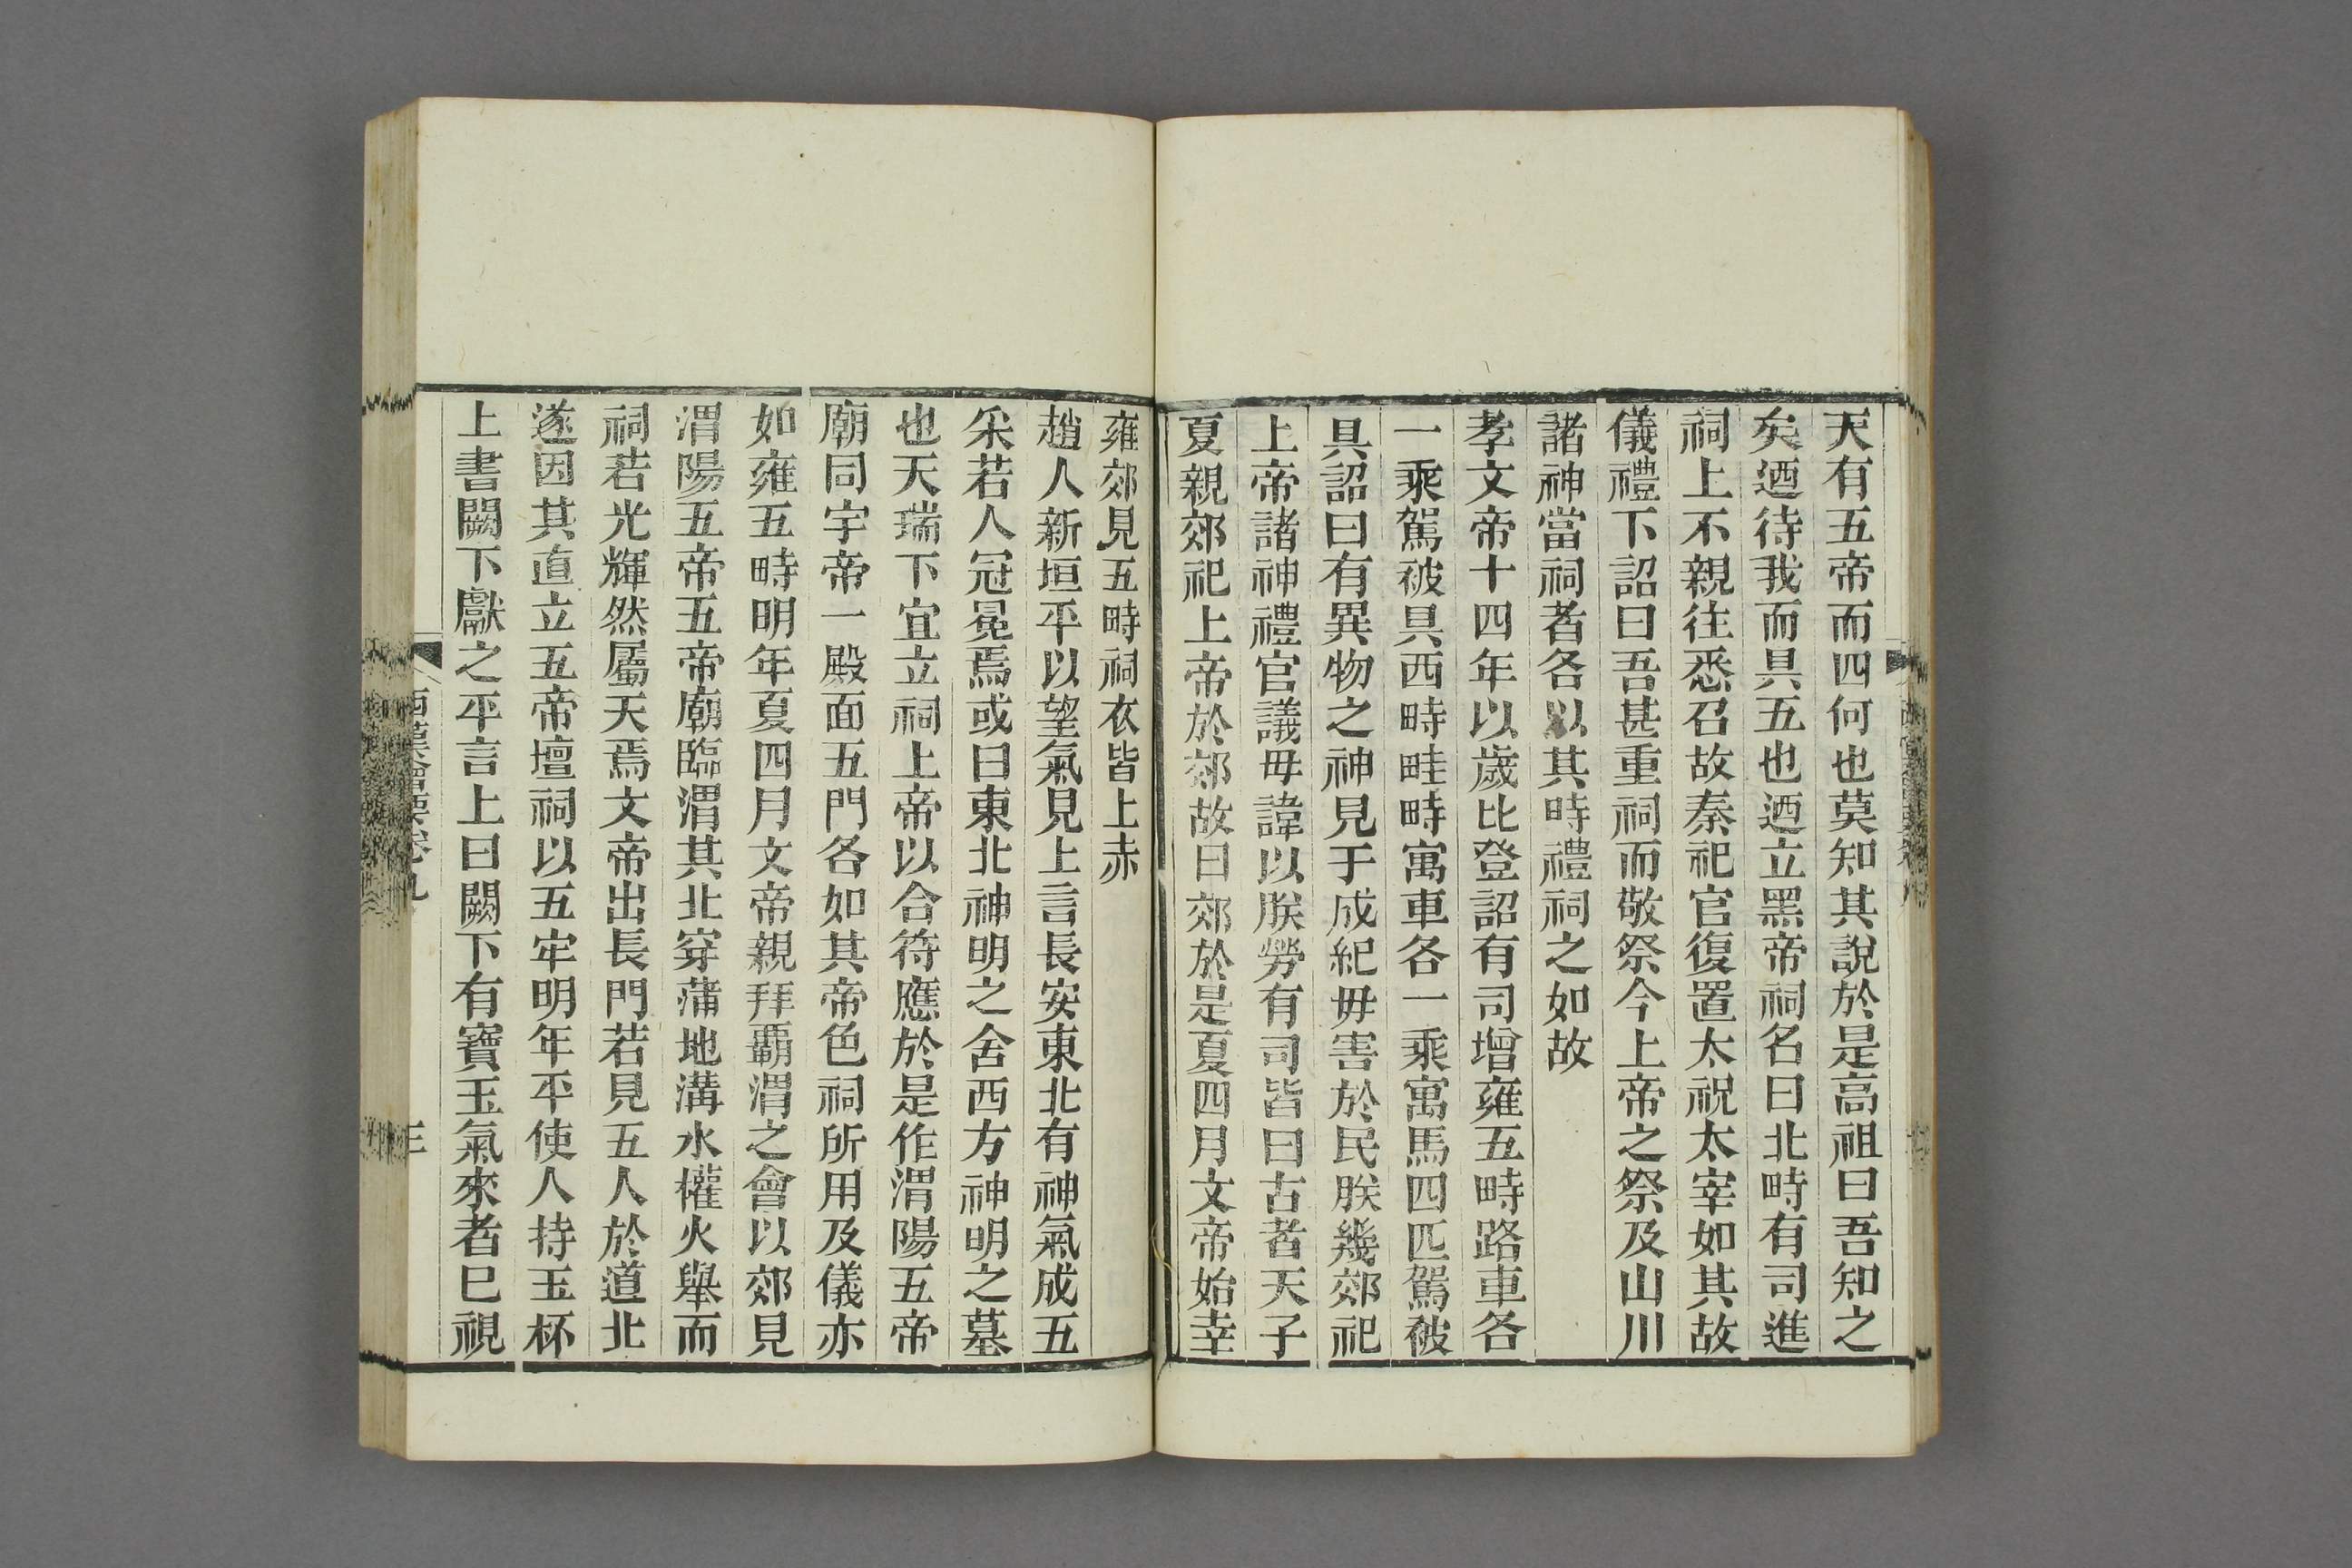 天有五帝而四何也莫知其說於是高祖曰吾知之
矣迺待我而具五也迺立黑帝祠名曰北畤有司進
祠上不親往悉召故秦祀官復置太祝太宰如其故
儀禮下詔曰吾甚重祠而敬祭今上帝之祭及山川
諸神當祠者各以其時禮祠之如故
孝文帝十四年以歲比登詔有司增雍五畤路車各
一乘駕被具西畤畦畤寓車各一乘寓馬四匹駕被
具詔曰有異物之神見于成紀毋害於民朕幾郊祀
上帝諸神禮官議毋諱以朕勞有司皆曰古者天子
夏親郊祀上帝於郊故曰郊於是夏四月文帝始幸
雍郊見五畤祠衣皆上赤
趙人新垣平以望氣見上言長安東北有神氣成五
采若人冠冕焉或曰東北神明之舍西方神明之墓
也天瑞下宜立祠上帝以合符應於是作渭陽五帝
廟同宇帝一殿面五門各如其帝色祠所用及儀亦
如雍五畤明年夏四月文帝親拜霸渭之會以郊見
渭陽五帝五帝廟臨渭其北穿蒲地溝水權火舉而
祠若光輝然屬天焉文帝出長門若見五人於道北
遂因其直立五帝壇祠以五牢明年平使人持玉杯
上書闕下獻之平言上曰闕下有寶玉氣來者巳視
西漢會要卷九
三